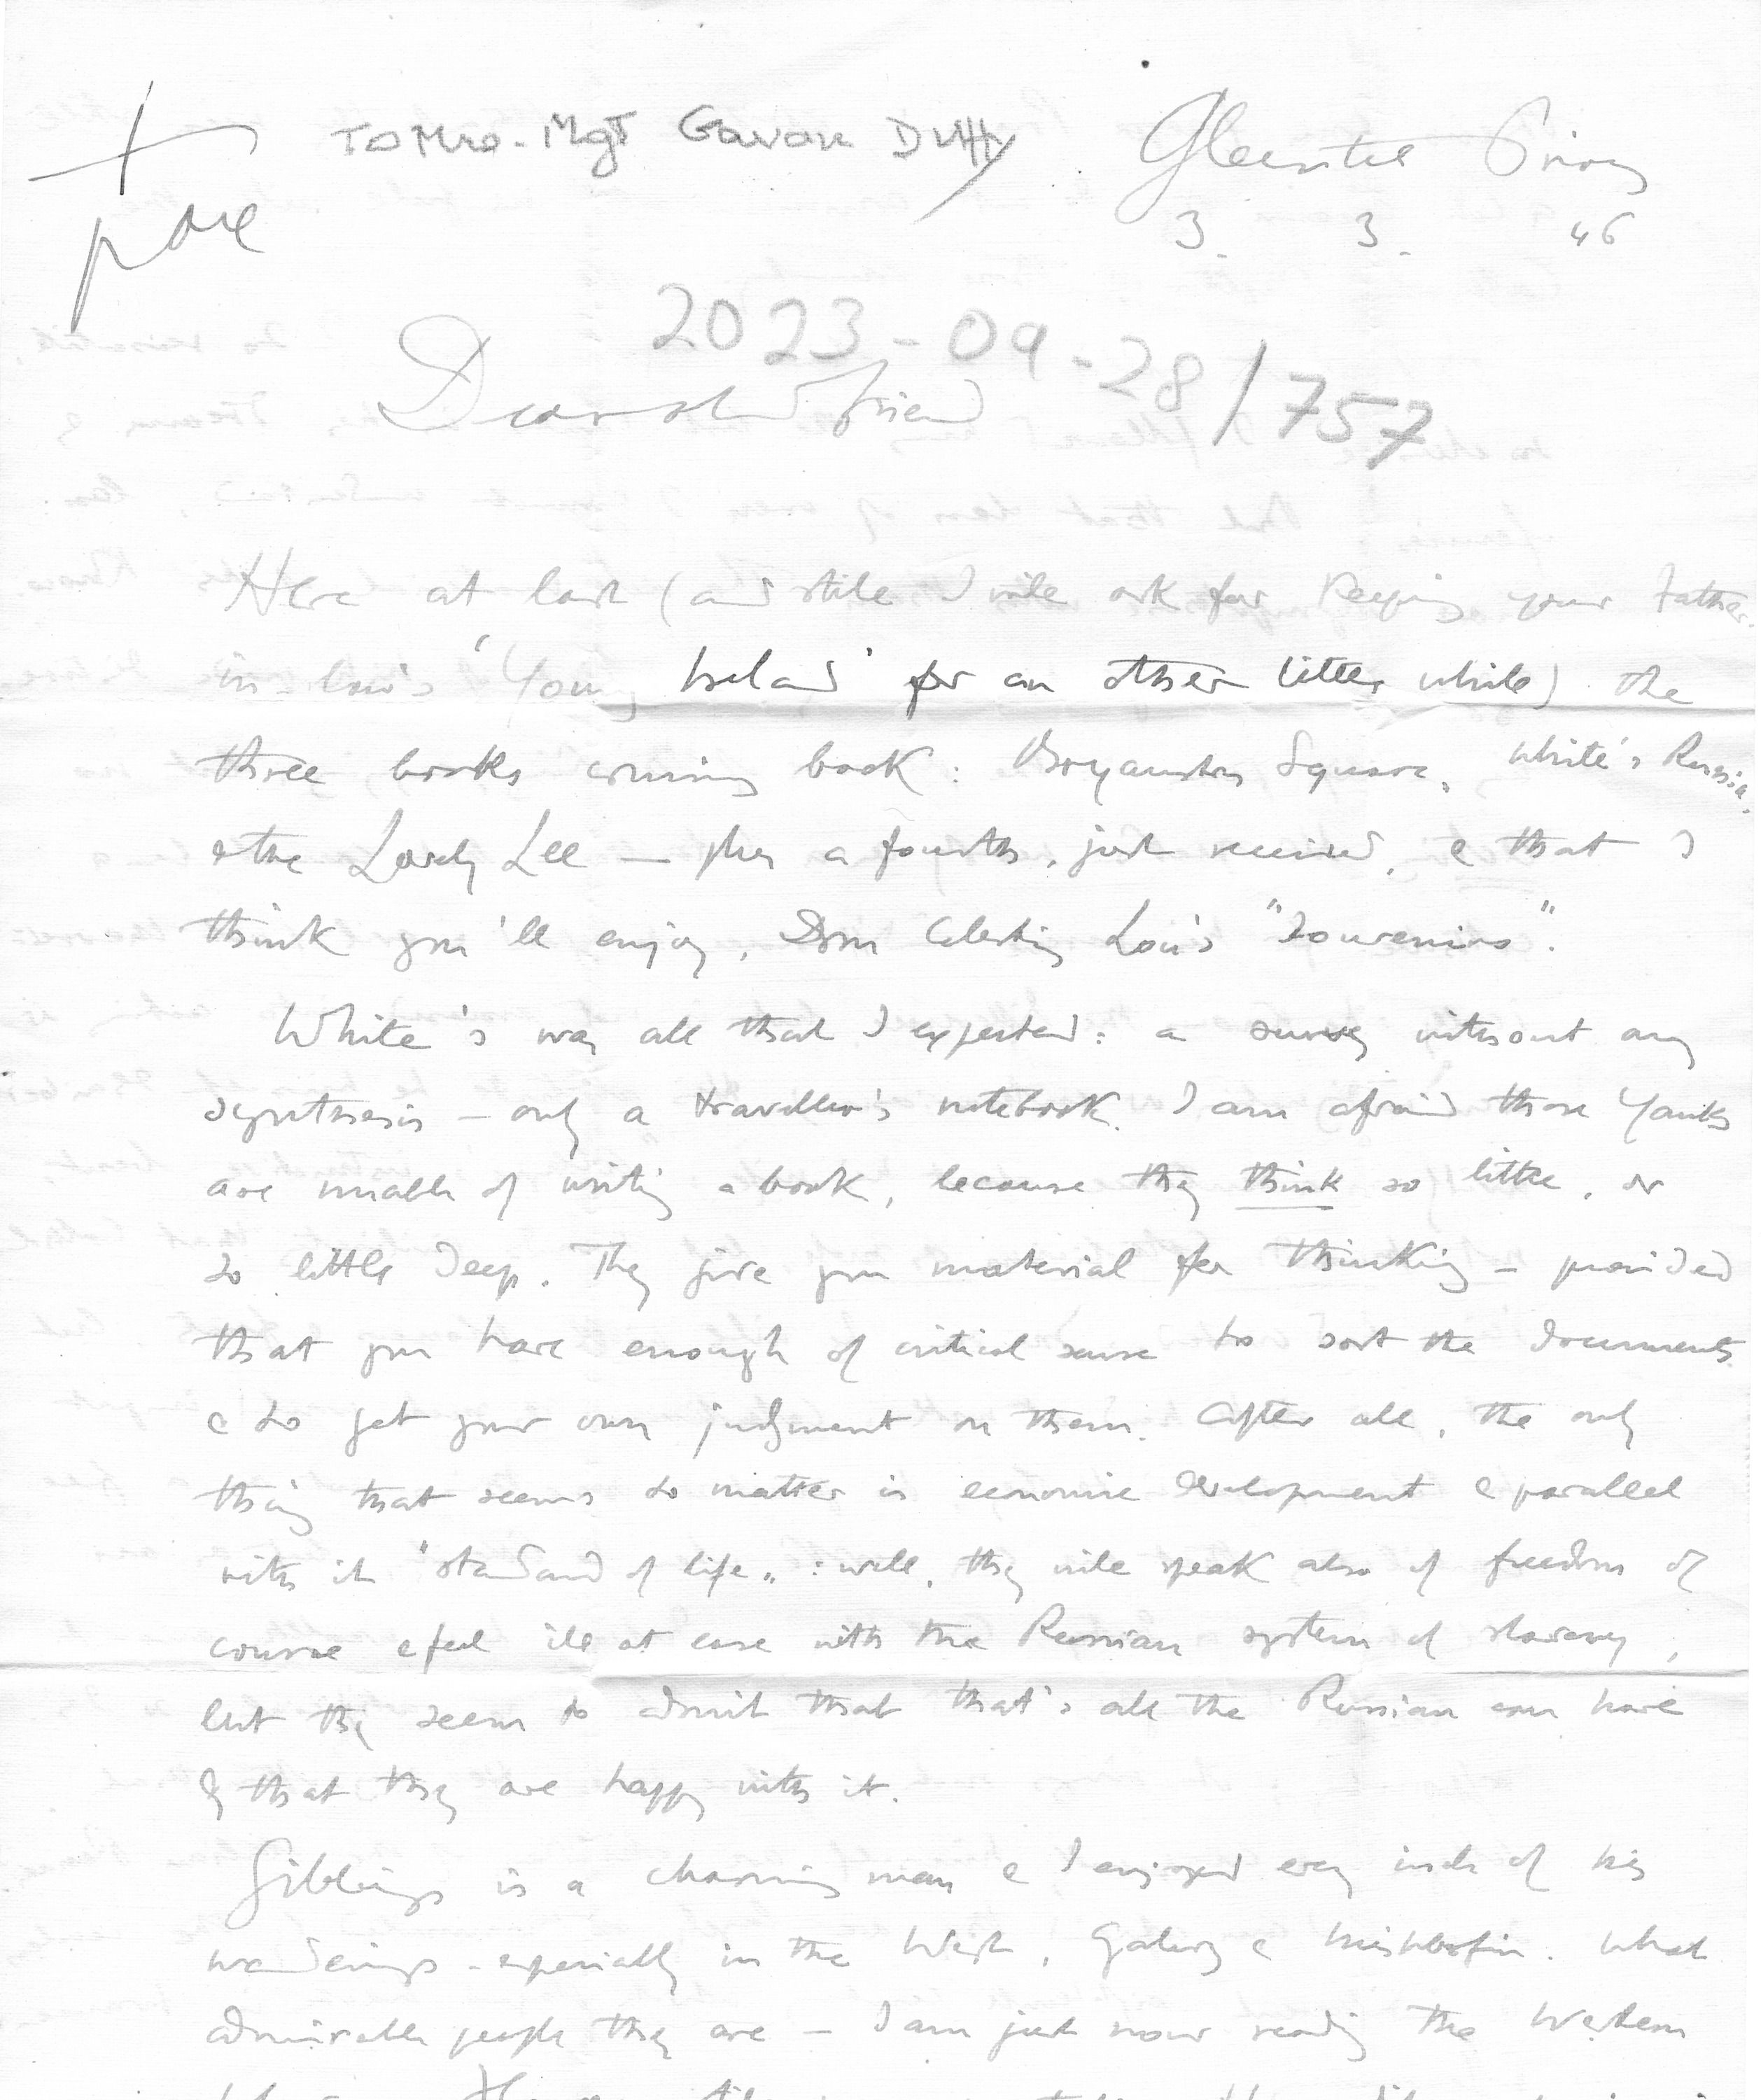 +
pax
To Mrs. Mgt Gavan Duffy
Glenstal Priory
3. 3. 46
2023-09-28/757
Dear old friend
Here at last (and still I will ask for keeping your Father-
in-law's 'Young Ireland' for an other little while) the
three books coming back: Bryanston Square, White's Russia,
& the Lovely Lee — plus a fourth, just received, & that I
think you'll enjoy, Dom Celestin Lou's "Souvenirs".
White's was all that I expected: a survey without any
synthesis — only a traveller's notebook. I am afraid those Yanks
are unable of writing a book, because they think so little, or
so little deep. They give you material for thinking — provided
that you have enough of critical sense to sort the documents
& to get your own judgment on them. After all, the only
thing that seems to matter is economic development & parallel
with it "standard of life": well, they will speak also of freedom of
course & feel ill at ease with the Russian system of slavery,
but they seem to admit that that's all the Russian can have
& that they are happy with it.
Gibbings is a charming man & I enjoyed every inch of his
wanderings - especially in the West, Galway & Inishbofin. What
admirable people they are — I am just now reading the Western